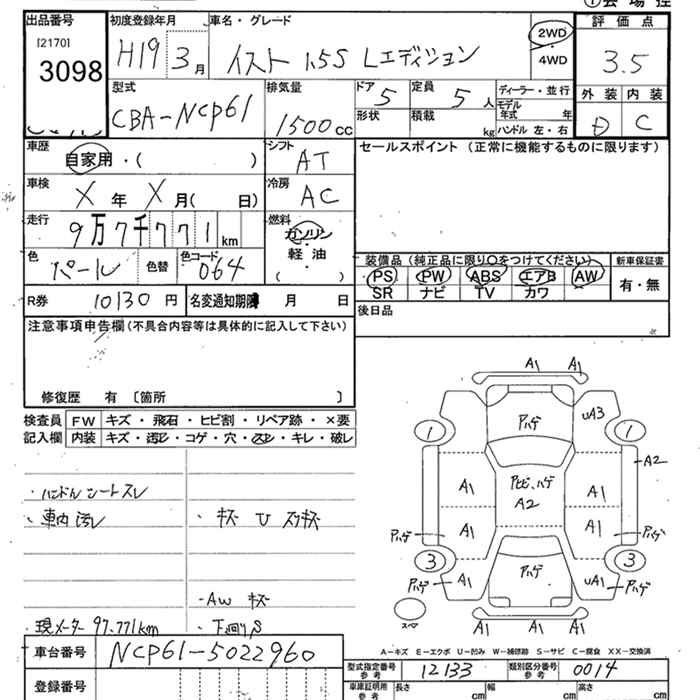 出品番号
[2170]
3098
初度登録年月
H19 3月
車名・グレード
イスト 1.5S Lエディション
2WD
・
4WD
評価点
3.5
型式
CBA-NCP61
排気量
1500cc
ドア
5
定員
5人
形状
積載
kg
ディーラー・並行
モデル年式 年
ハンドル 左・右
外装 内装
D C
車歴
自家用・( )
シフト
AT
セールスポイント (正常に機能するものに限ります)
車検
X年X月( 日)
冷房
AC
走行
9万7千771km
燃料
ガソリン
・
軽油
( )
色
パール
色替
色コード
064
装備品 (純正品に限り○をつけてください)
新車保証書
PS PW ABS エアB AW
SR ナビ TV カワ
有・無
R券 10130円
名変通知期限 月 日
後日品
注意事項申告欄(不具合内容等は具体的に記入して下さい)
修復歴 有 〔箇所 〕
検査員記入欄
FW キズ・飛石・ヒビ割・リペア跡・×要
内装 キズ・汚レ・コゲ・穴・スレ・キレ・破レ
・ハンドル シートスレ
・車内汚レ
・キズ U スリキズ
・AW キズ
・現メーター 97.771km
・下廻りS
A1 A1
ハゲ
UA3
1 1
A2
A1
A2
A1
A1
A1
Pハゲ
Pハゲ
3 3
Pハゲ
A1
Pハゲ
UA1
Pハゲ
スペ
A1 A1 A1
A-キズ E-エクボ U-凹み W-補修跡 S-サビ C-腐食 XX-交換済
車台番号 NCP61-5022960
型式指定番号
参考
12133
類別区分番号
参考
0014
登録番号
車庫証明用
参考
長さ cm
幅 cm
高さ cm